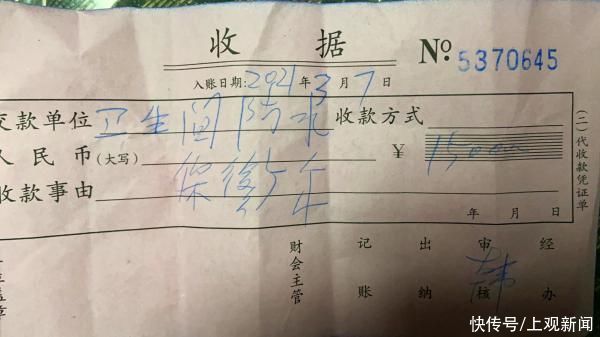 收 据 № 5370645
入账日期: 2021 年 3 月 7 日
交款单位 卫生间防水 收款方式
人民币 (大写) ¥ 1500
收款事由 保修5年
年 月 日
(二)代收款凭证单
财会主管 记账 出纳 审核 经办
快传号/上观新闻